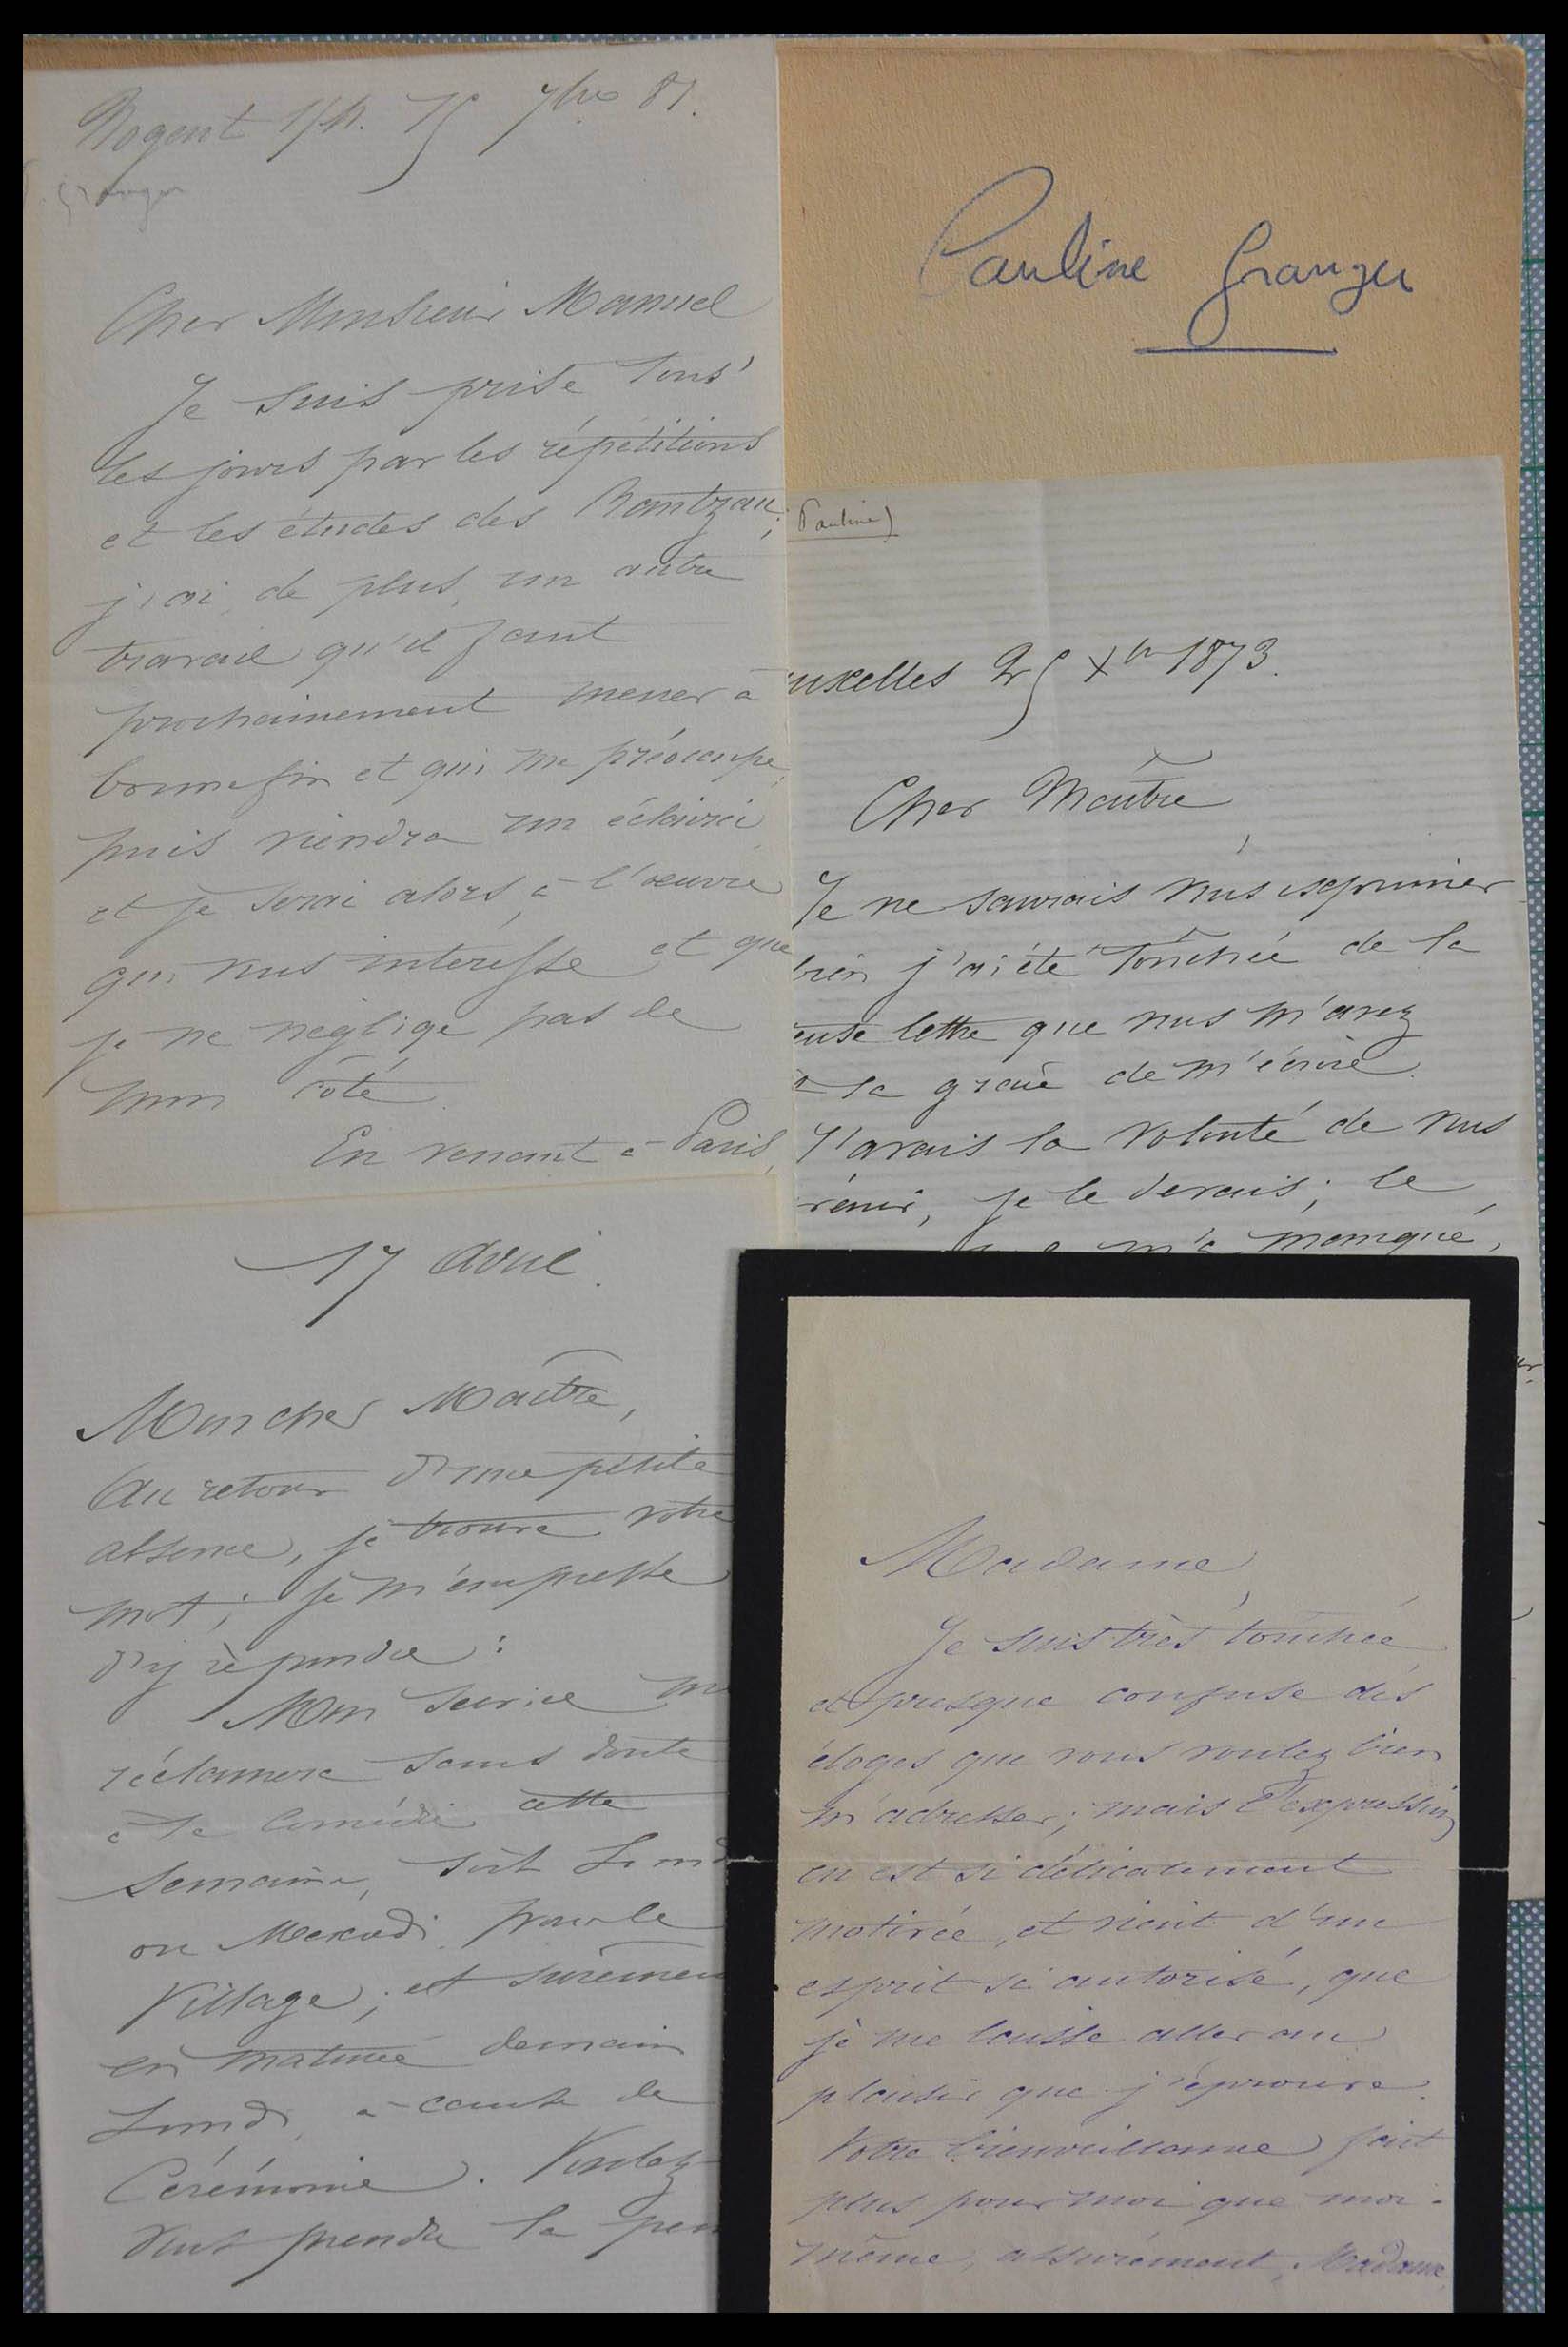 Nogent s/M. 15 7bre 81.
Granger
Cher Monsieur Manuel
Je suis prise tous
les jours par les répétitions
et les études des Rantzau;
j'ai, de plus, un autre
travail qu'il faut
prochainement mener à
bonne fin et qui me préoccupe,
puis viendra un éclairci
et je serai alors à l'oeuvre
qui vous intéresse et que
je ne néglige pas de
mon côté.
En venant à Paris,
Pauline Granger
Pauline)
uxelles 25 Xbre 1873.
Cher Maître,
Je ne saurais vous exprimer
bien j'ai été touchée de la
euse lettre que vous m'avez
la grâce de m'écrire.
J'avais la volonté de vous
révenir, je le devais; le
m'a manqué,
17 Avril.
Mon cher Maître,
Au retour d'une petite
absence, je trouve votre
mot; je m'empresse
d'y répondre:
Mon service me
réclamera sans doute
à la Comédie cette
semaine, soit Lundi
ou Mercredi pour le
Village; et surêmen
en matinée demain
Lundi, à cause de
Cérémonie. Voulez-
vous prendre la pein
Madame,
Je suis très touchée
et presque confuse des
éloges que vous voulez bien
m'adresser; mais l'expression
en est si délicatement
motivée, et vient d'un
esprit si autorisé, que
je me laisse aller au
plaisir que j'éprouve.
Votre bienveillance fait
plus pour moi que moi-
même, assurément, Madame,